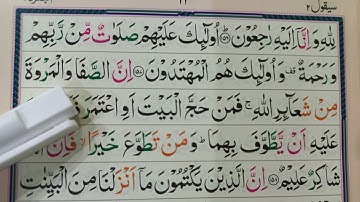 سيقول ٢
لِلّٰهِ وَاِنَّاۤ اِلَيْهِ رٰجِعُوْنَ ﴿١٥٦﴾ اُولٰٓئِكَ عَلَيْهِمْ صَلَوٰتٌ مِّنْ رَّبِّهِمْ
وَرَحْمَةٌ ۟ وَاُولٰٓئِكَ هُمُ الْمُهْتَدُوْنَ ﴿١٥٧﴾ اِنَّ الصَّفَا وَالْمَرْوَةَ
مِنْ شَعَآئِرِ اللّٰهِ ۚ فَمَنْ حَجَّ الْبَيْتَ اَوِ اعْتَمَرَ
عَلَيْهِ اَنْ يَّطَّوَّفَ بِهِمَا ؕ وَمَنْ تَطَوَّعَ خَيْرًا ۙ فَاِنَّ
شَاكِرٌ عَلِيْمٌ ﴿١٥٨﴾ اِنَّ الَّذِيْنَ يَكْتُمُوْنَ مَاۤ اَنْزَلْنَا مِنَ الْبَيِّنٰتِ